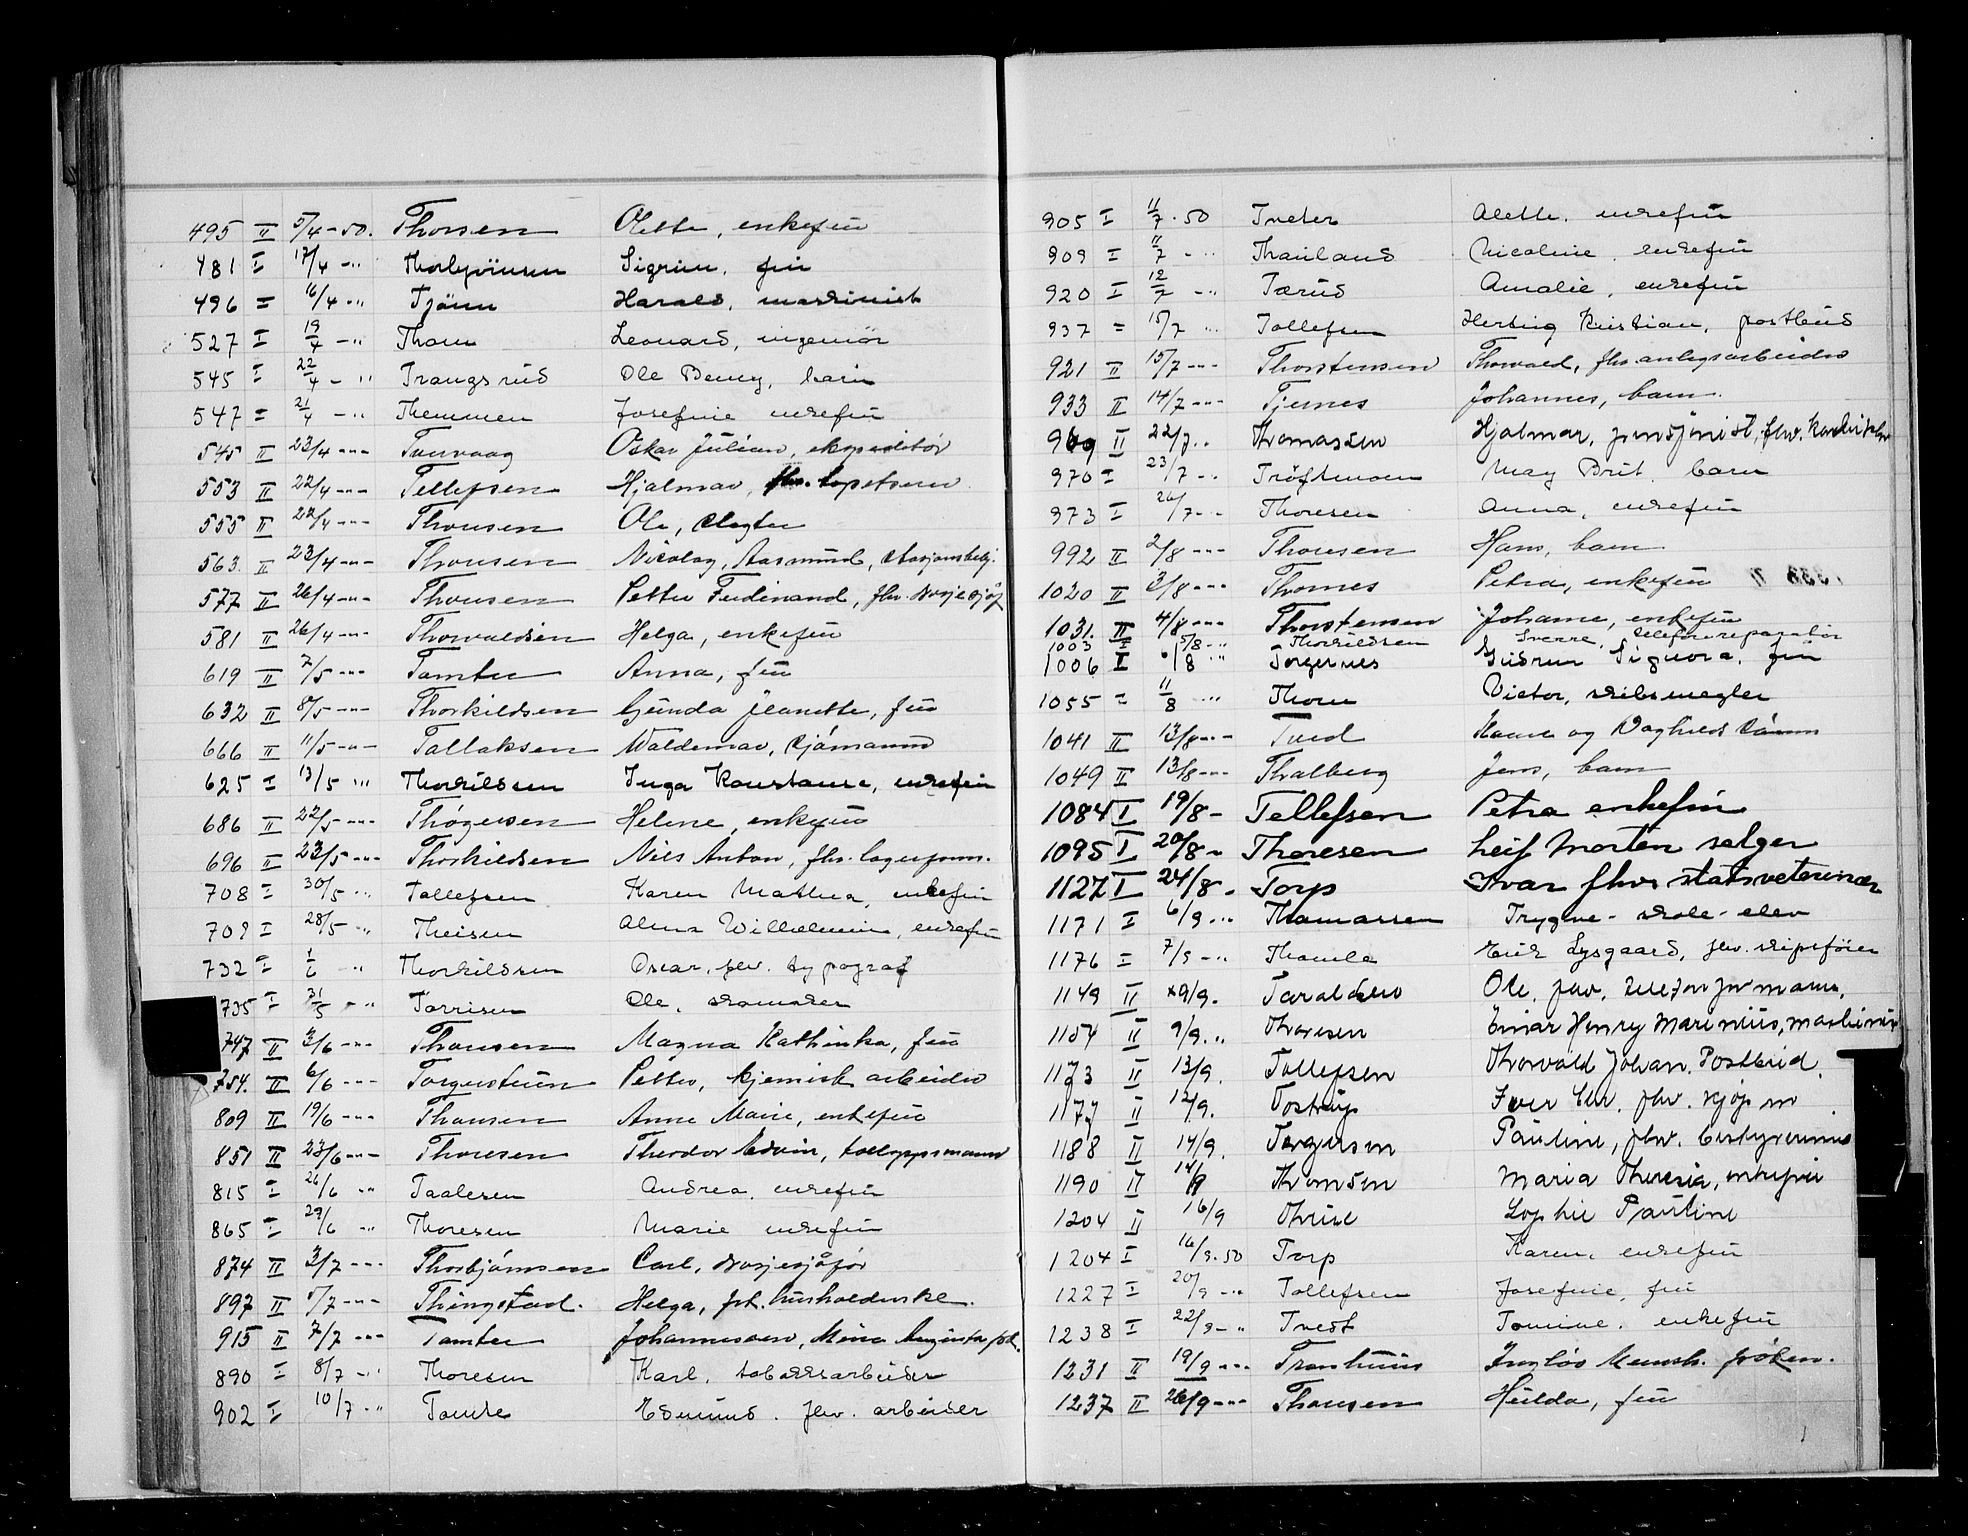 495 II 5/4-50. Thorsen Olette, enkefru
481 I 17/4 -" Thorbjörnsen Sigrun, fru
496 = 16/4 -" Tjönn Harald, maskinist
527 I 19/4 -" Thom Leonard, ingeniör
545 I 22/4 -" Trangsrud Ole Benny, barn
547 = 21/4 -" Themmen Josefine enkefru
545 II 23/4 -"- Oskar Julian, ekspeditör
553 II 22/4 -"- Tellefsen Hjalmar, fhv. tapetserer
555 II 22/4 -"- Thorsen Ole, slagter
563. II 23/4 -"- Thorsen Nicolay, Aasmund,
577 II 26/4 -"- Thorsen Petter Ferdinand, fhv.
581 II 26/4 -"- Thorvaldsen Helga, enkefru
619 II 7/5 -"- Tambur Anna, fru
632 II 8/5 -"- Thorkildsen Gunda Jeanette, fru
666 II 11/5 -"- Tallaksen Waldemar, sjömann
625 I 13/5 -" Thorkildsen Inga Konstanse, enkefru
686 II 22/5 -"- Thögersen Helene, enkefru
696 II 23/5 -"- Thorkildsen Nils Anton, fhv. lagerform.
708 I 30/5 -" Tollefsen Karen Mathea, enkefru
709 I 28/5 -" Theisen Alma Wilhelmine, enkefru
732 I 1/6 -" Thorkildsen Oscar, fhv. typograf
735 I 31/5 -" Torrisen Ole, skomaker
747 II 3/6 -"- Thorsen Magna Kathinka, fru
754. II 6/6 -"- Torgerstuen Petter, kjemisk arbeider
809 II 19/6 -"- Thorsen Anne Marie, enkefru
851 II 23/6 -"- Thoresen Theodor Edvin, tolloppsmann
815 I 26/6 -" Taalesen Andrea, enkefru
865 I 29/6 -" Thoresen Marie enkefru
874 II 3/7 -"- Thorbjörnsen Carl, drosjesjåför
897 II 5/7 -"- Thingstad. Helga, frk. husholderske.
915 II 7/7 -"- Tambur Johannessen, Mina Augusta frk.
890 I 8/7 -" Thoresen Karl, tobakksarbeider
902 I 10/7 -" Tomte Edmund. fhv. arbeider
905 I 11/7 - 50 Tveter Alette. enkefru
909 I 11/7 -" Thauland Nicoline, enkefru
920 I 12/7 -" Tærud Amalie, enkefru
937 = 15/7 " Tollefsen Hertvig Kristian, postbud
921 II 15/7 -"- Thorstensen Thorvald, fhv. anlegsarbeider
933 II 14/7 -"- Tjernes Johannes, barn.
969 II 22/7 " Thomassen Hjalmar,
970 I 23/7 -" Tröftmoen May Brit, barn
973 I 26/7 -" Thoresen Anna, enkefru
992 II 2/8 -"- Thoresen Hans, barn
1020 II 3/8 -"- Thornes Petra, enkefru
1031. II 4/8 -"- Thorstensen Johanne, enkefru
1003 I 5/8 -" Thorkildsen Sverre, telefonreparatör
1006 I 6/8 " Torgernes Gudrun Signora, fru
1055 = 11/8 " Thom Victor, skibsmegler
1041 II 13/8 -"- Tveed Kaare og Dagheid Tömm
1049 II 13/8 -"- Thalberg Jens, barn
1084 I 19/8 - Tellefsen Petra enkefru
1095 I 20/8 - Thoresen Leif Morten selger
1127 I 24/8 - Torp Ivar fhv statsveterinær
1171 I 6/9 -" Thomassen Trygve - skole-elev
1176 I 7/9 -" Erik Lysgaard, fhv. skipsförer
1149 II 9/9. Taraldsen Ole, fhv. telefonformann.
1154 II 9/9. " Thoresen Einar Henry Marinius, maskinist
1173 II 13/9. Tollefsen Thorvald Johan. Postbud.
1177 II 12/9. Tostrup Iver Chr. fhv. kjøpm
1188 II 14/9. Torgersen Pauline, fhv. bestyrerinne
1190 II 14/9 Thomsen Maria Theresia, enkefru
1204 II 16/9 Thrue Sophie Pauline
1204 I 16/9. 50 Torp Karen, enkefru
1227 I 20/9 -" Tollefsen Josefine, fru
1238 I 22/9 - " Tvedt Tomine. enkefru
1231 II 19/9 -"- Tronhuus Ingbör Munch. fröken.
1237 II 26/9 -"- Thorsen Hulda, fru